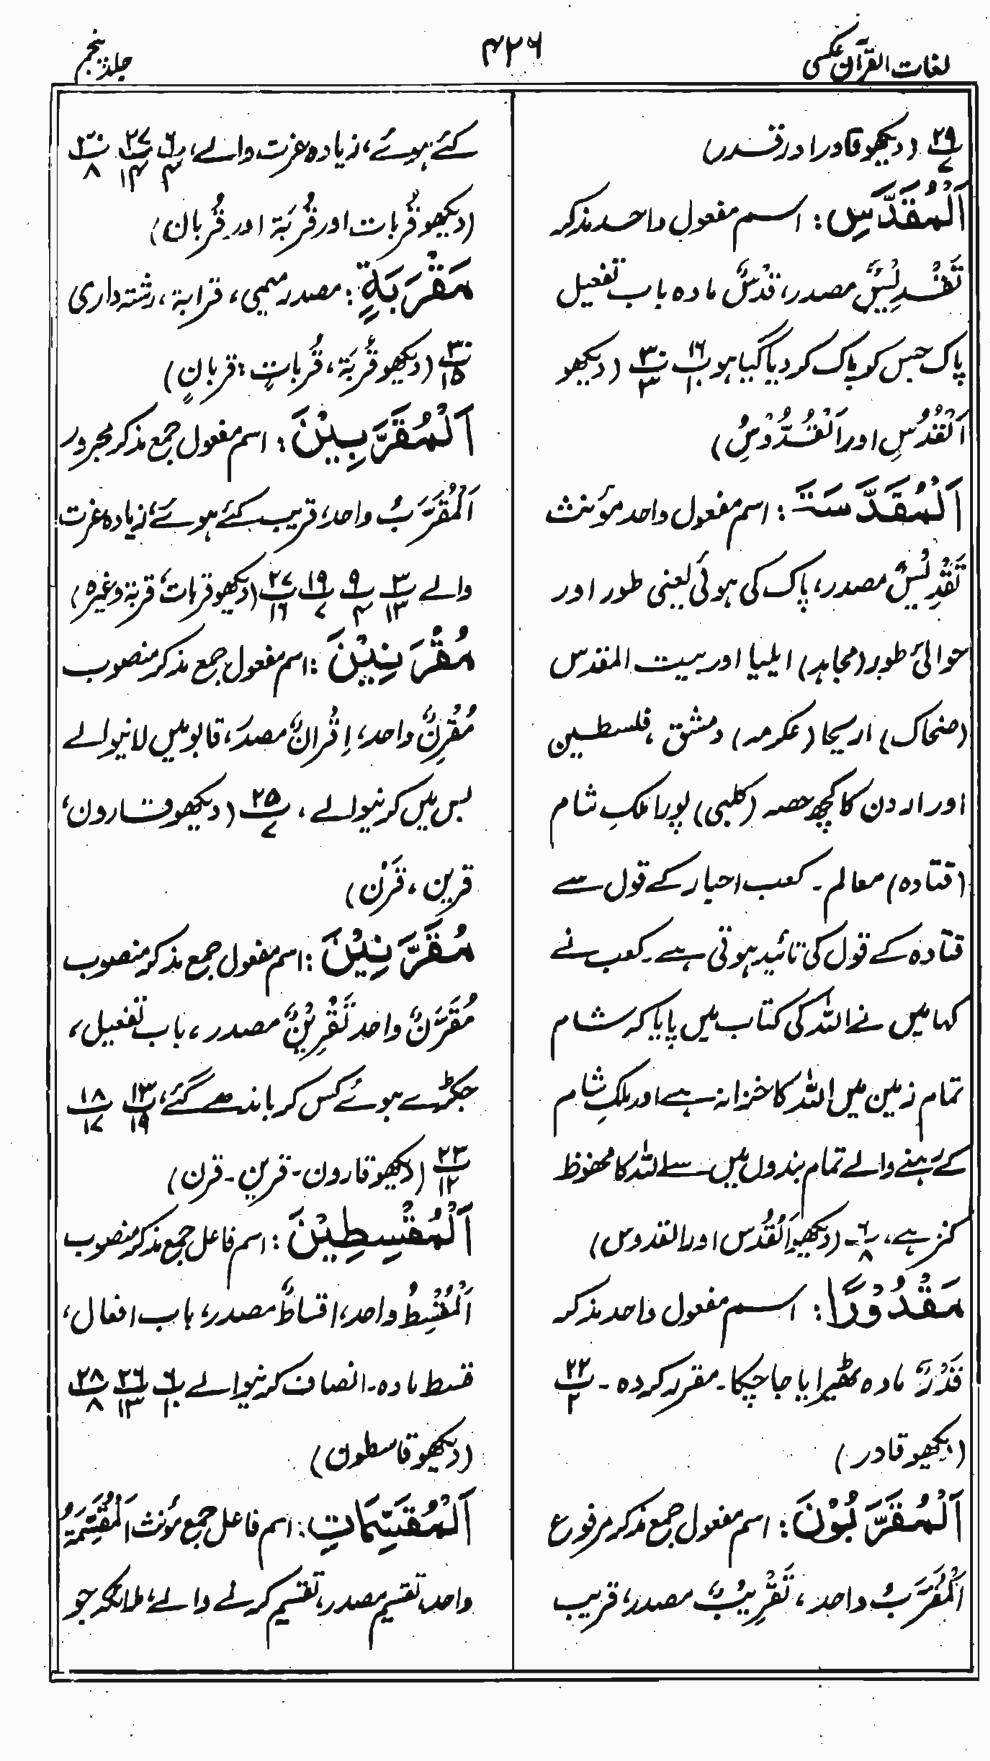 لغات القرآن عکسی
۴۲۶
جلد پنجم
۲۹/۷ (دیکھو قادر اور قدر)
اَلْمُقَدَّسِ: اسم مفعول واحد مذکر
تَقْدِیْسٌ مصدر، قُدْسٌ مادہ باب تفعیل
پاک جس کو پاک کر دیا گیا ہو ۱۶/۱۰ ۳۰/۳ (دیکھو
اَلْقُدُسِ اور اَلْقُدُّوْسُ)
اَلْمُقَدَّسَۃَ: اسم مفعول واحد مؤنث
تَقْدِیْسٌ مصدر، پاک کی ہوئی یعنی طور اور
حوالیٔ طور (مجاہد) ایلیا اور بیت المقدس
(ضحاک) اریحا (عکرمہ) دمشق، فلسطین
اور اردن کا کچھ حصہ (کلبی) پورا ملکِ شام
(قتادہ) معالم۔ کعب احبار کے قول سے
قتادہ کے قول کی تائید ہوتی ہے۔ کعب نے
کہا میں نے اللہ کی کتاب میں پایا کہ شام
تمام زمین میں اللہ کا خزانہ ہے اور ملکِ شام
کے رہنے والے تمام بندوں میں سے اللہ کا محفوظ
کنز ہے، ۶/۸۔ (دیکھو اَلْقُدُس اور القدوس)
مَقْدُوْرًا: اسم مفعول واحد مذکر
قَدْرٌ مادہ ٹھیرایا جا چکا۔ مقرر کردہ۔ ۲۲/۲
(دیکھو قادر)
اَلْمُقَرَّبُوْنَ: اسم مفعول جمع مذکر مرفوع
اَلْمُقَرَّبُ واحد، تَقْرِیْبٌ مصدر، قریب
کئے ہوئے، زیادہ عزت والے، ۶/۴ ۲۷/۱۴ ۳۰/۸
(دیکھو قُرُبات اور قُرْبَۃ اور قُرْبان)
مَقْرَبَۃٍ: مصدر میمی، قرابۃ، رشتہ داری
۳۰/۱۵ (دیکھو قُرْبَۃ، قُرُباتٍ، قربانٍ)
اَلْمُقَرَّبِیْنَ: اسم مفعول جمع مذکر مجرور
اَلْمُقَرَّبُ واحد، قریب کئے ہوئے، زیادہ عزت
والے ۳/۱۳ ۹/۴ ۱۹/۷ ۲۷/۱۶ (دیکھو قربات، قربۃ وغیرہ)
مُقْرِنِیْنَ: اسم مفعول جمع مذکر منصوب
مُقْرِنٌ واحد، اِقْرانٌ مصدر، قابو میں لانیوالے
بس میں کرنیوالے، ۲۵/۷ (دیکھو قارون،
قرین، قَرْن)
مُقَرَّنِیْنَ: اسم مفعول جمع مذکر منصوب
مُقَرَّنٌ واحد تَقْرِیْنٌ مصدر، باب تفعیل،
جکڑے ہوئے کس کر باندھے گئے، ۱۳/۱۹ ۱۸/۱۷
۲۳/۱۲ (دیکھو قارون۔ قرین۔ قرن)
اَلْمُقْسِطِیْنَ: اسم فاعل جمع مذکر منصوب
اَلْمُقْسِطُ واحد، اقساطٌ مصدر، باب افعال،
قسط مادہ۔ انصاف کرنیوالے ۶/۱۰ ۲۶/۱۳ ۲۸/۸
(دیکھو قاسطون)
اَلْمُقَسِّمَاتِ: اسم فاعل جمع مؤنث اَلْمُقَسِّمَۃُ
واحد، تقسیم مصدر، تقسیم کرنے والے، ملائکہ جو